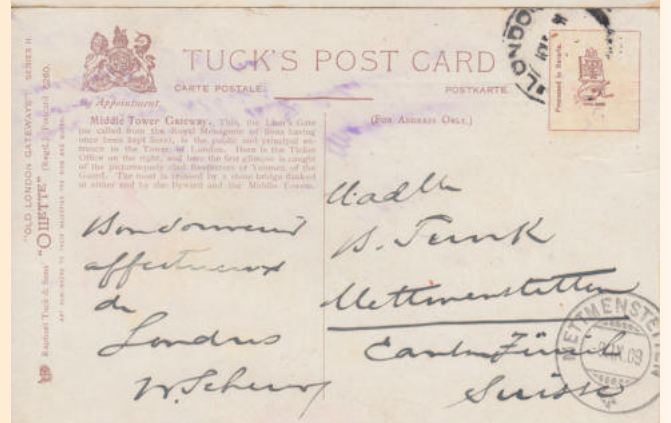 "OLD LONDON GATEWAYS" SERIES II.
"OILETTE" (Regd.) Postcard 6260.
Raphael Tuck & Sons'
ART PUBLISHERS TO THEIR MAJESTIES THE KING AND QUEEN.
TUCK'S POST CARD
CARTE POSTALE.
POSTKARTE.
By Appointment.
(FOR ADDRESS ONLY.)
Middle Tower Gateway. This, the Lion's Gate
(so called from the Royal Menagerie of lions having
once been kept here), is the public and principal en-
trance to the Tower of London. Here is the Ticket
Office on the right, and here the first glimpse is caught
of the picturesquely clad Beefeaters or Yeomen of the
Guard. The moat is crossed by a stone bridge flanked
at either end by the Byward and the Middle Towers.
Bon souvenir
affectueux
de
Londres
Madlle
Mettmenstetten
Canton Zürich
Suisse
LONDON
METTMENSTETTEN
IX.09